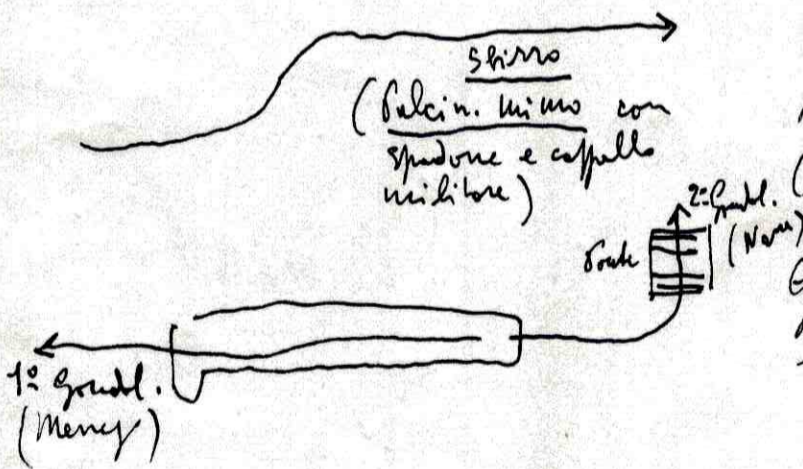 sbirro
(Pulcin. mimo con
spadone e cappello
militare)
2º Gondol.
(Nano)
Ponte
1º Gondol.